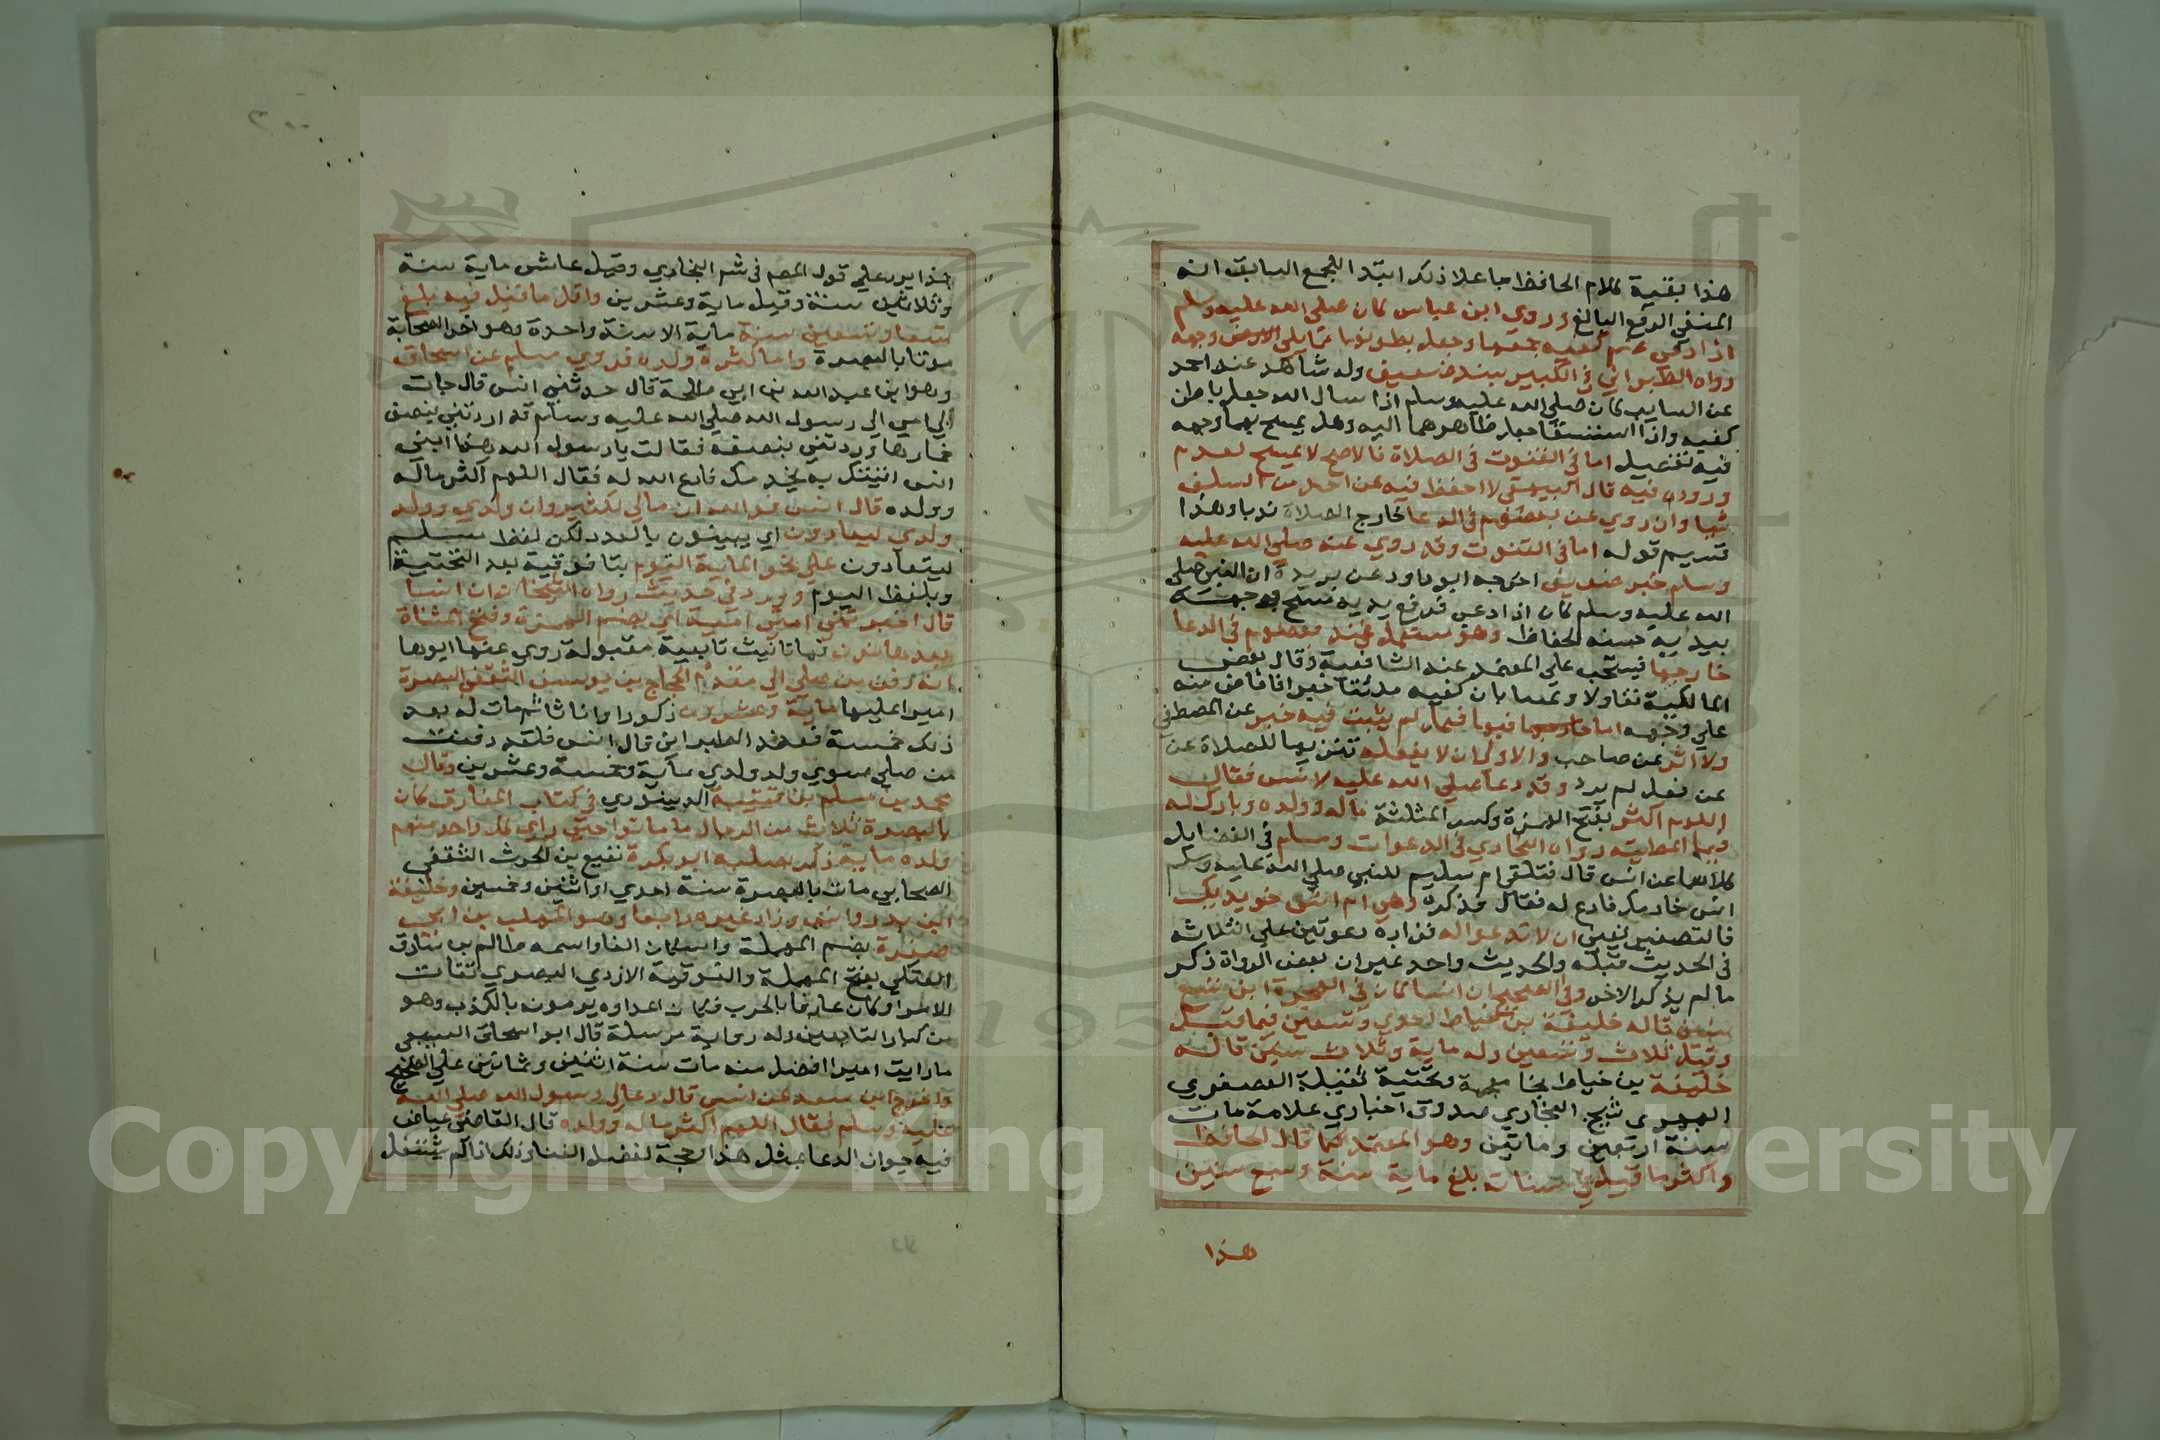 هذا بقية كلام الحافظ جاعلا ذلك ابتدا الجمع السابق انه
المنفي الرفع البالغ وروي ابن عباس كان صلى الله عليه وسلم
اذا دعى ضم كفيه وجعل بطونهما مما يلي وجهه
رواه الطبراني في الكبير بسند ضعيف وله شاهد عند احمد
عن السايب كان صلى الله عليه وسلم اذا سال الله جعل باطن
كفيه واذا استعاذ جعل ظاهرهما اليه وهل يمسح بهما وجهه
فيه تفصيل اما في القنوت في الصلاة فالاصح لا يمسح لعدم
وروده فيه قال البيهقي لا احفظ فيه عن احد من السلف
شيا وان روي عن بعضهم في الدعا خارج الصلاة
قوله اما في القنوت وقد روي عنه صلى الله عليه
وسلم خبر ضعيف اخرجه ابو داود عن بريدة ان النبي صلى
الله عليه وسلم كان اذا دعى فرفع يديه مسح وجهه
بيديه وهو مستعمل عند بعضهم في الدعا
خارجها فيستحب على المعتمد عند الشافعية وقال بعض
المالكية تفاولا وتيمنا بان كفيه ملئتا خيرا فافاض منه
على وجهه اما فيها فيما لم يثبت فيه خبر عن المصطفى
ولا اثر عن صاحب والاولى ان لا يفعله تنزيها للصلاة عن
عن فعل لم يرد وقد دعا صلى الله عليه لانس فقال
اللهم اكثر بفتح الهمزة وكسر المثلثة ماله وولده وبارك له
فيما اعطيته رواه البخاري في الدعوات ومسلم في الفضايل
كلاهما عن انس قال ام سليم للنبي صلى الله عليه وسلم
انس خادمك فادع له فقال فذكره وهي ام انس خويدمك
فالتصغير ان لا تدعو له فزاده دعوتين على الثلاثة
في الحديث قبله والحديث واحد غير ان بعض الرواة ذكر
ما لم يذكر الاخر وفي الصحيح ان انسا كان في الهجرة ابن تسع
سنين قاله خليفة بن خياط احدي وتسعين فيما قيل
وقيل ثلاث وتسعين وله ماية وثلاث سنين قاله
خليفة بن خياط بخا معجمة وتحتية ثقيلة العصفري
البصرى شيخ البخاري صدوق اخباري علامة مات
سنة اربعين وماتين وهو المعتمد كما قال الحافظ
واكثر ما قيل في سنه انه بلغ ماية سنة وسبع سنين
هذا
هذا يرد على قوله المص في شم البخاري وقيل عاش ماية سنة
وثلاثين سنة وقيل ماية وعشرين واقل ما قيل فيه بلغ
تسعا وتسعين سنة ماية الا سنة واحدة وهو اخر الصحابة
موتا بالبصرة واما كثرة ولده فروي مسلم عن اسحاق
وهو ابن عبد الله بن ابي طلحة قال حدثني انس قال جات
بي امي الى رسول الله صلى الله عليه وسلم قد ازرتني بنصف
خمارها وردتني بنصفه فقالت يا رسول الله هذا ابني
انس اتيتك به يخدمك فادع الله له فقال اللهم اكثر ماله
وولده قال انس فوالله ان مالي لكثير وان ولدي وولد
ولدي ليعادون اي بالعدد لكن لفظ مسلم
ليتعادون على نحو الماية اليوم بتا فوقية بعد التحتية
وبلفظ اليوم وورد في حديث رواه الشيخان ان انسا
قال اخبرتني ابنتي امينة اي بضم الهمزة وفتح المثناة
بعدها نون تانيث تابعية مقبولة روي عنها ابوها
انه دفن من صلبي الى مقدم الحجاج بن يوسف الثقفي البصرة
اميرا عليها ماية وعشرون ذكورا واناثا ثم مات له بعد
ذلك خمسة فعند الطبراني قال انس فلقد دفنت
من صلبي سوي ولد ولدي ماية وخمسة وعشرين وقال
محمد بن مسلم بن قتيبة الدينوري في كتاب المعارف كان
بالبصرة ثلاثة من الرجال ما ماتوا حتى راي كل واحد منهم
ولده ماية ذكر لصلبه ابو بكرة نفيع بن الحرث الثقفي
الصحابي مات بالبصرة سنة احدي او اثنتين وخمسين وخليفة
ابن بدر وانس وزاد غيره رابعا وهو المهلب بن ابي
صفرة بضم المهملة واسكان الفا واسمه ظالم بن سارق
العتكي بفتح المهملة والفوقية الازدي البصري من ثقات
الامرا وكان عارفا بالحرب فكان اعداوه يرمونه بالكذب وهو
من كبار التابعين وله رواية مرسلة قال ابو اسحاق السبيعي
ما رايت اميرا افضل منه مات سنة اثنتين وثمانين على الصحيح
واخرج ابن سعد عن انس قال دعا لي رسول الله صلى الله
عليه وسلم فقال اللهم اكثر ماله وولده قال القاضي عياض
فيه جواز الدعا بمثل هذا وحجة لفضل الغنا وذلك اذا لم يشغل
Copyright © King Saud University